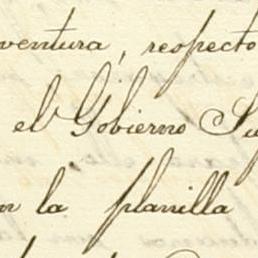 ventura, respecto
el Gobierno Su
n la planilla